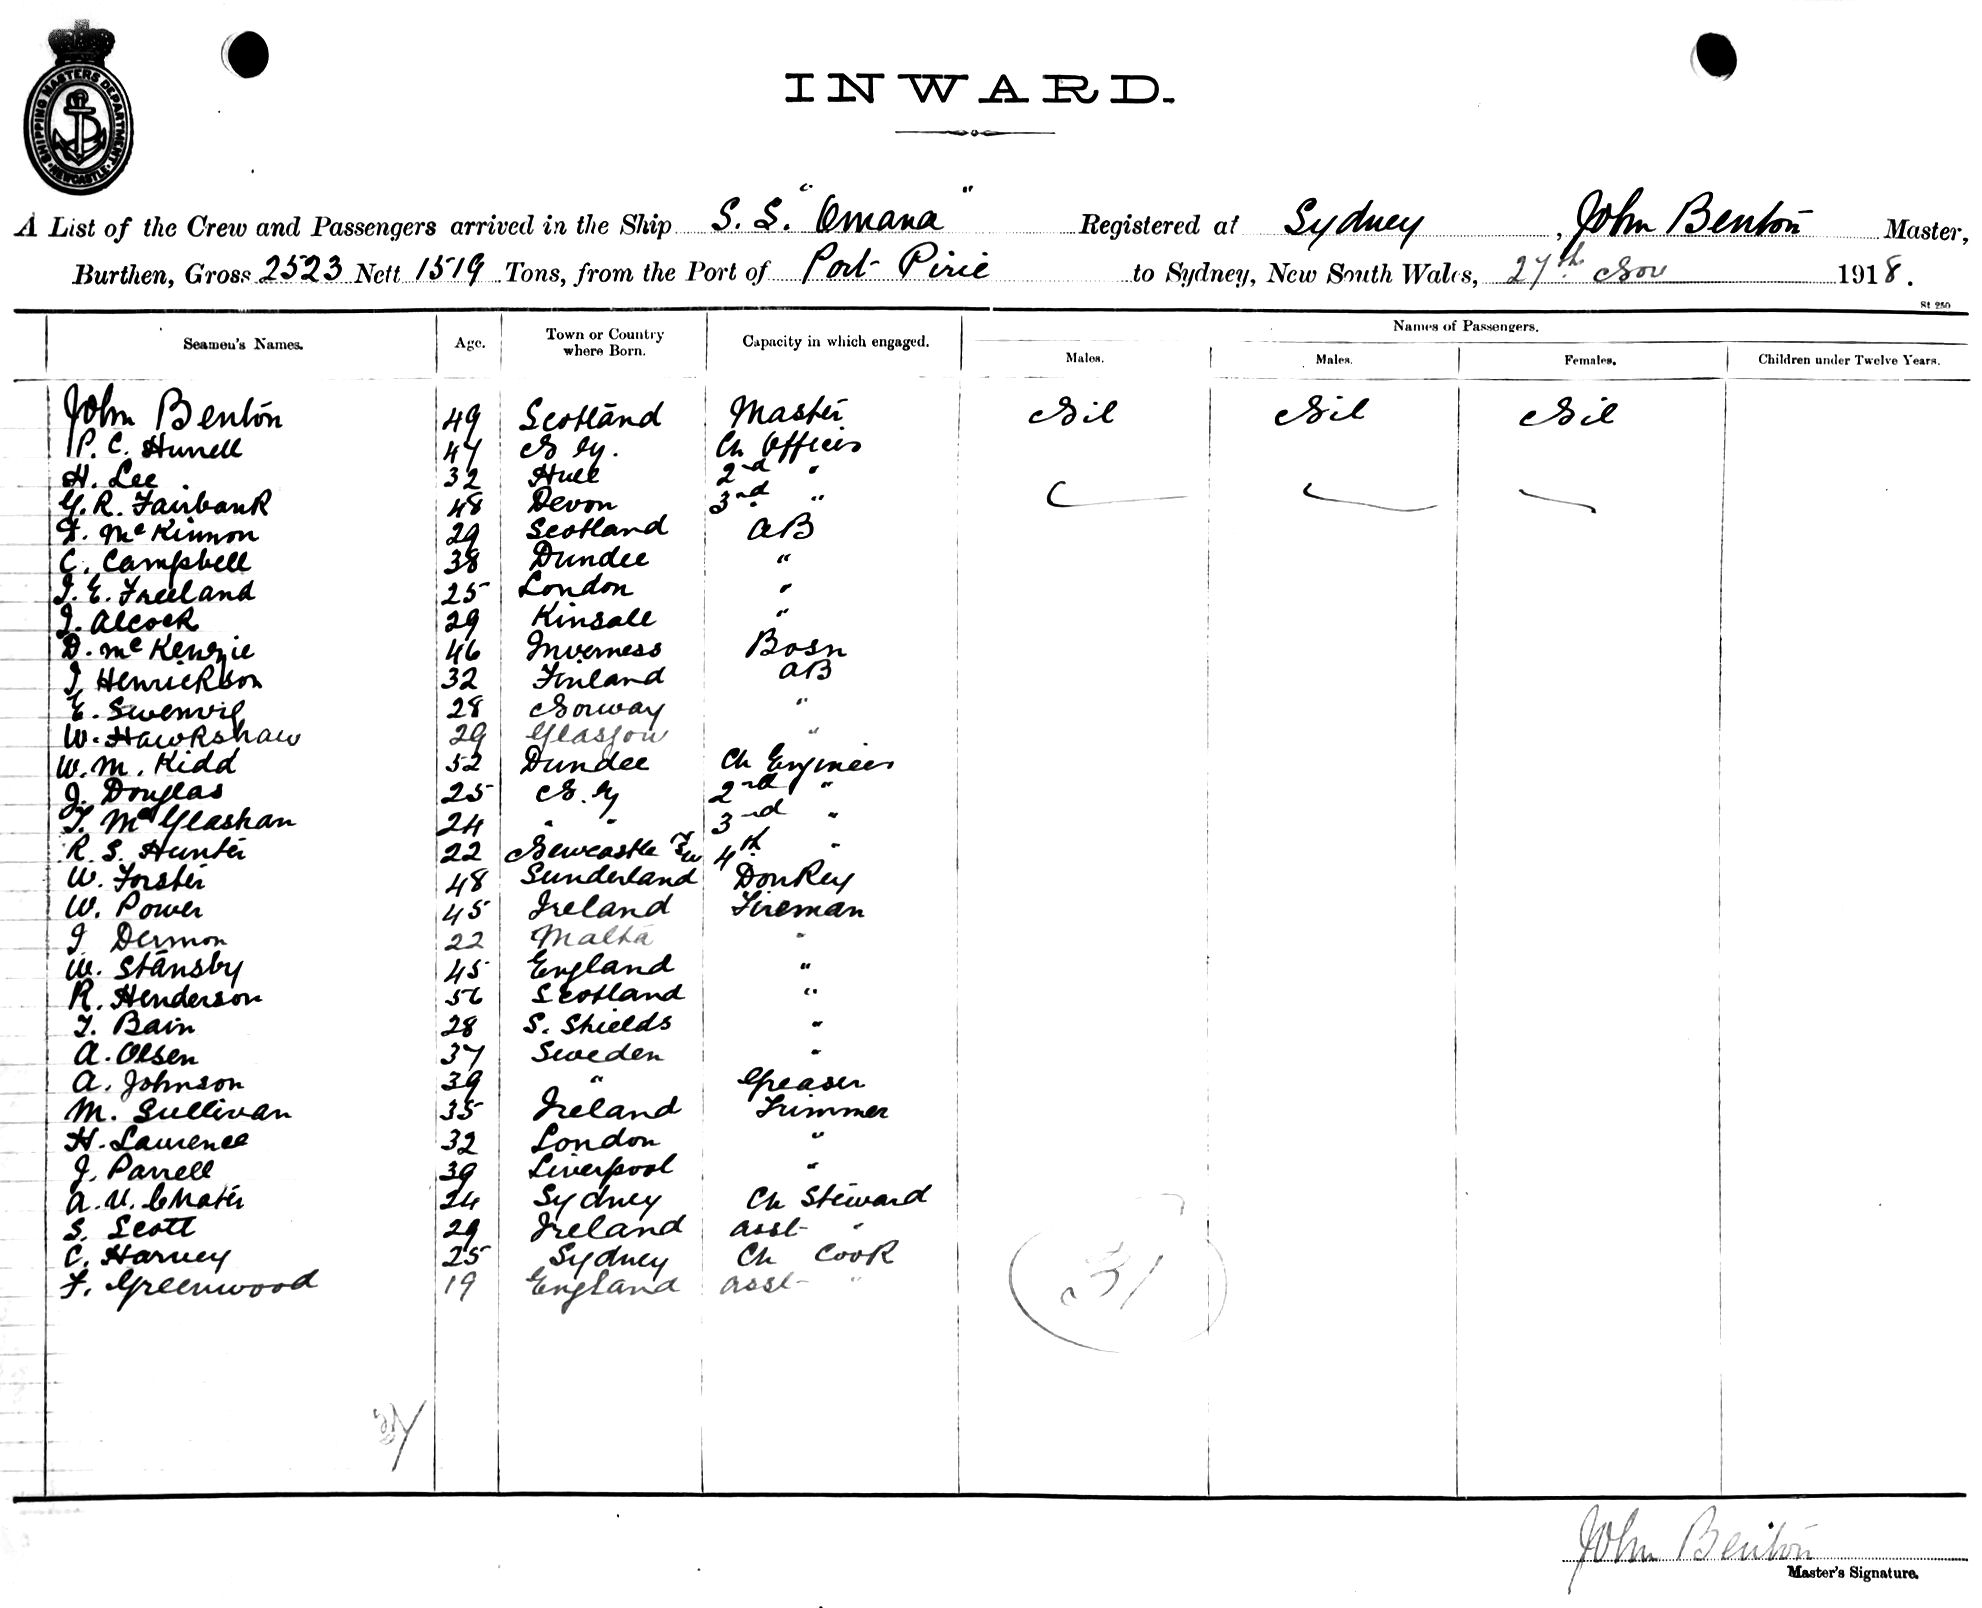 SHIPPING MASTERS DEPARTMENT
NEWCASTLE
INWARD.
A List of the Crew and Passengers arrived in the Ship S. S. "Omana" Registered at Sydney, John Benton Master,
Burthen, Gross 2523 Nett 1519 Tons, from the Port of Port Pirie to Sydney, New South Wales, 27th Nov 1918.
St 250
Names of Passengers.
Seamen's Names. Age. Town or Country where Born. Capacity in which engaged. Males. Males. Females. Children under Twelve Years.
John Benton 49 Scotland Master Nil Nil Nil
P. C. Hunell 47 N. Ox. Ch Officer
H. Lee 32 Hull 2nd "
G. R. Fairbank 48 Devon 3rd "
F. McKinnon 29 Scotland AB
C. Campbell 38 Dundee "
J. E. Freeland 25 London "
J. Alcock 29 Kinsale "
D. McKenzie 46 Inverness Bosn
J Henrickson 32 Finland AB
E. Swenvig 28 Norway "
W. Hawkshaw 29 Glasgow "
W. M. Kidd 52 Dundee Ch Engineer
J. Douglas 25 2nd "
T. McGlashan 24 " " 3rd "
R. S. Hunter 22 Newcastle 4th "
W. Forster 48 Sunderland Donkey
W. Power 45 Ireland Fireman
J Dermon 22 Malta "
W. Stansby 45 England "
R. Henderson 56 Scotland "
T. Bain 28 S. Shields "
A. Olsen 37 Sweden "
A. Johnson 39 " Greaser
M. Sullivan 35 Ireland Trimmer
H. Laurence 32 London "
J. Parrell 39 Liverpool "
A. V. 24 Sydney Ch Steward
S. Scott 29 Ireland Asst "
C. Harvey 25 Sydney Ch Cook
F. Greenwood 19 England Asst "
31
31
John Benton
Master's Signature.